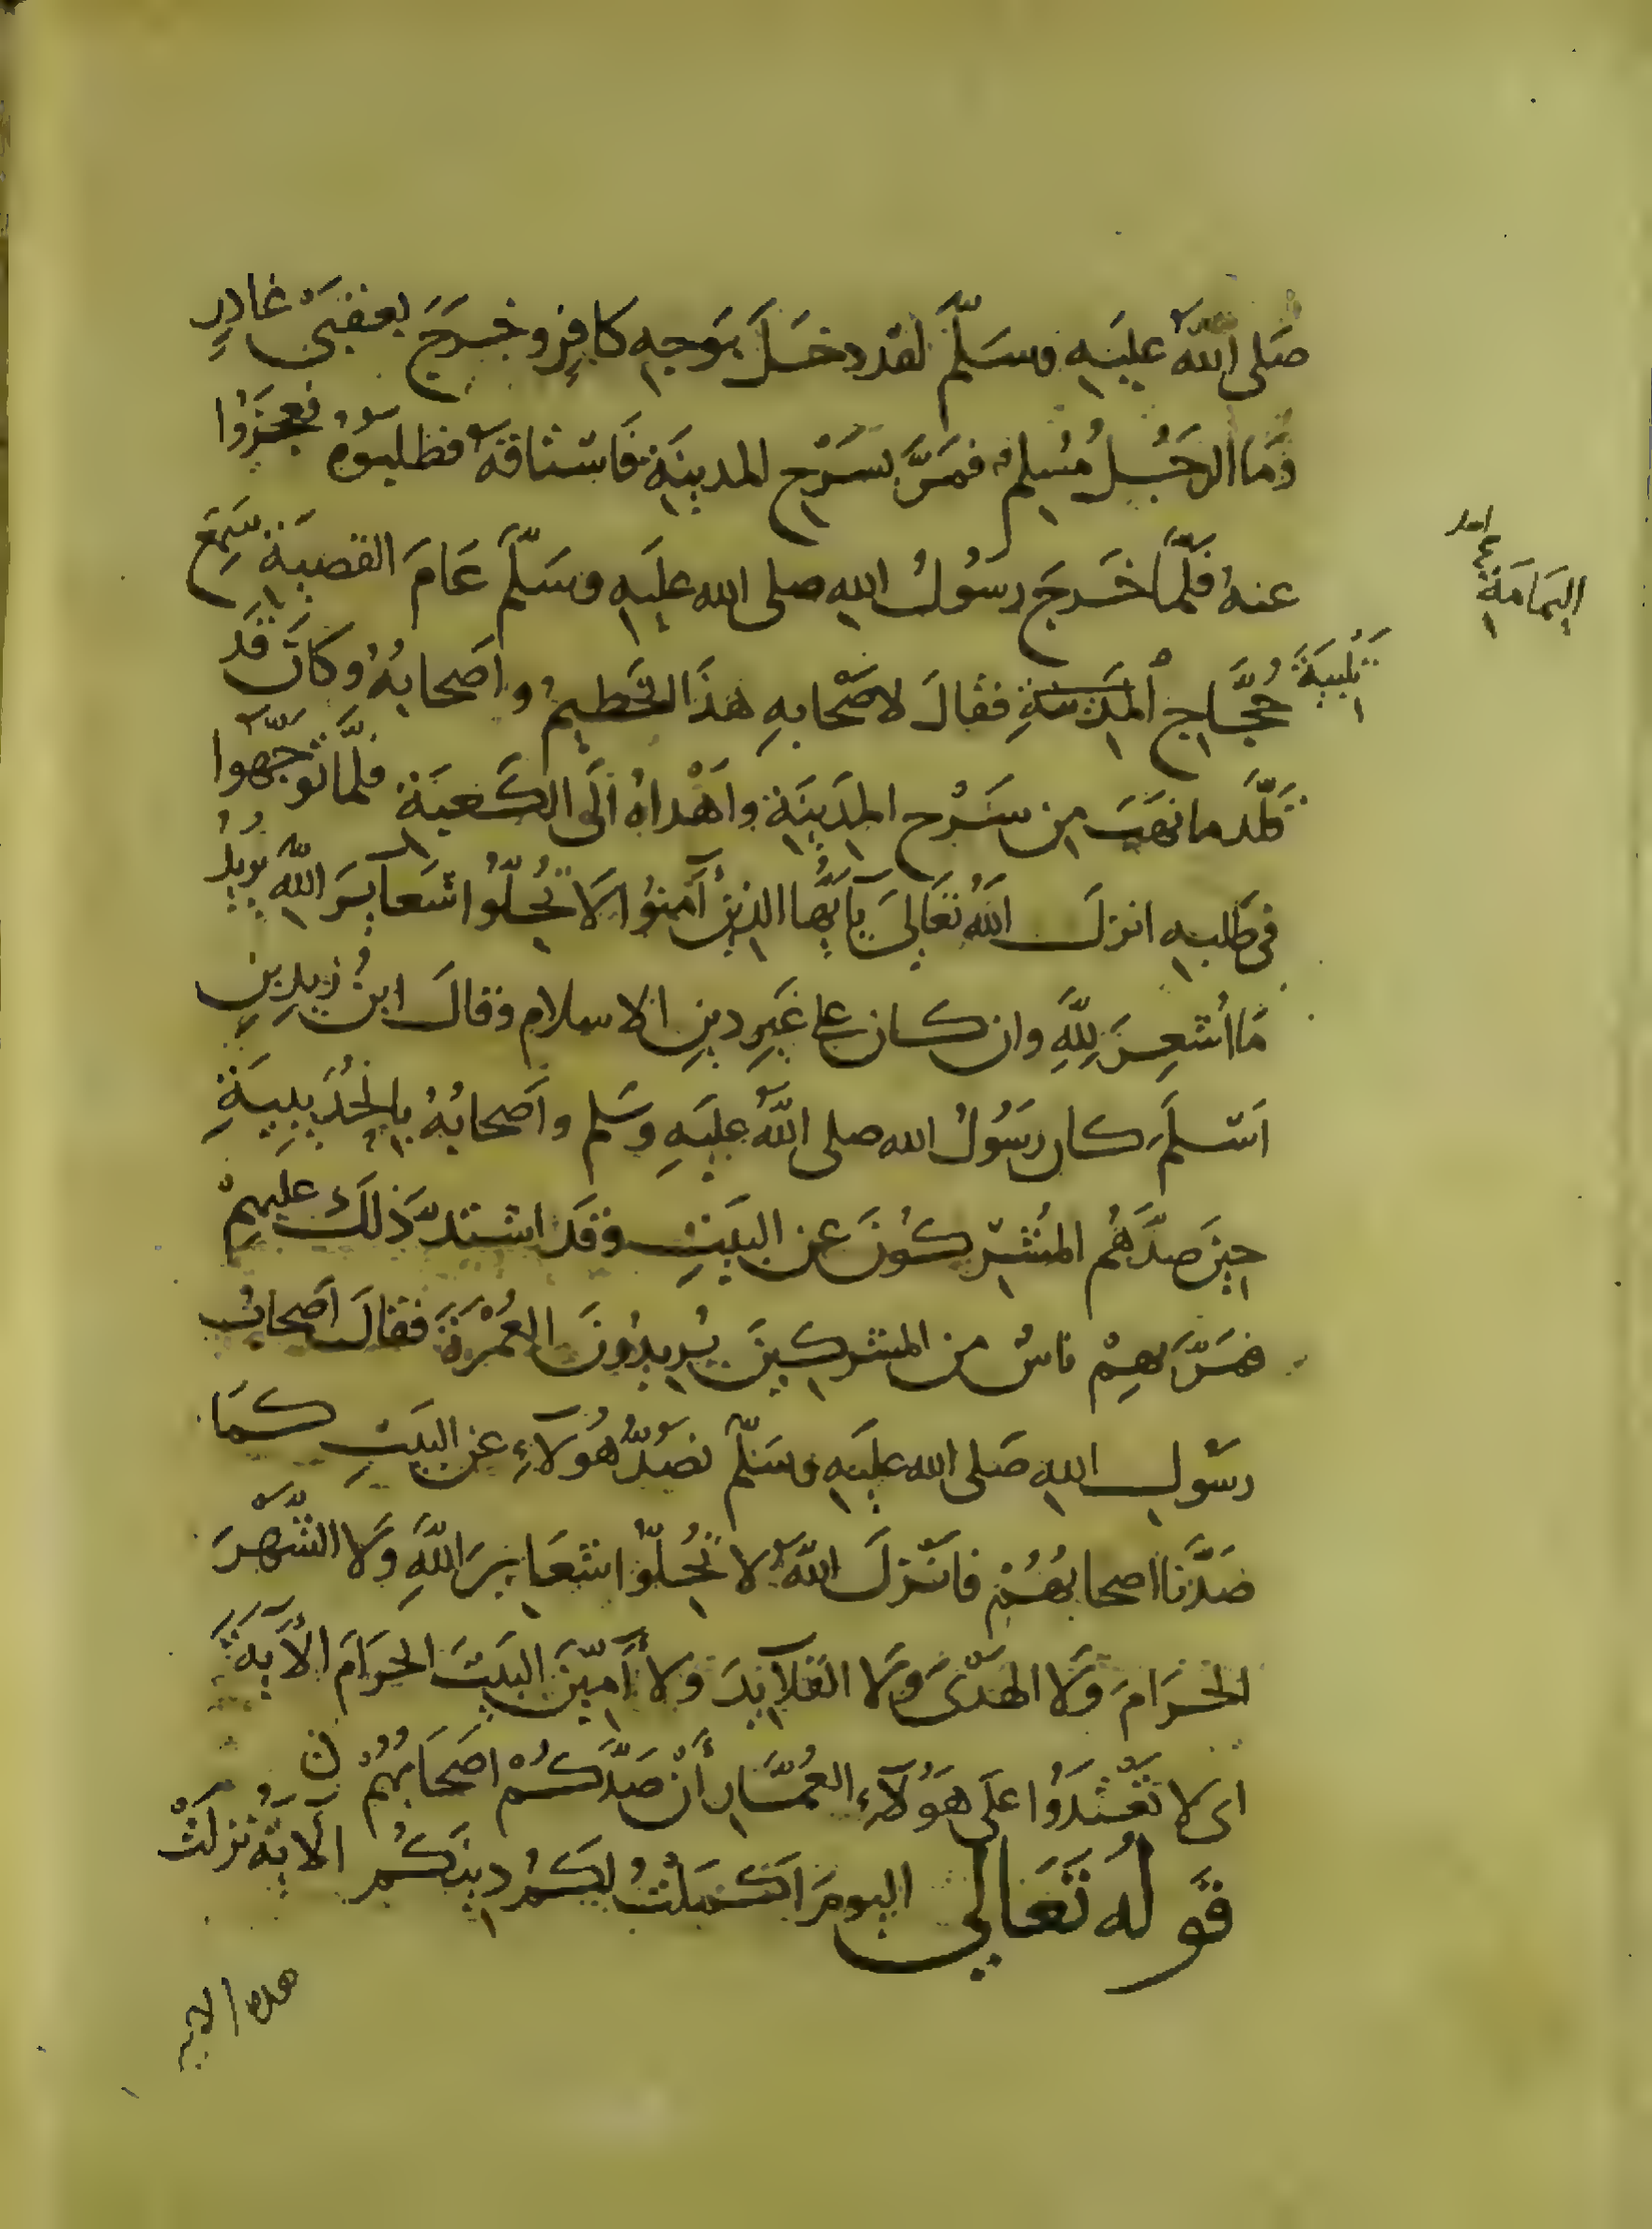 صَلى اللهُ عليَهِ وسَلّمَ لقد دخَلَ بوَجهِ كافِرٍ وخرَجَ بعقبَىْ غادِرٍ
وَمَا الرجُلُ مُسْلِم فمَرَّ بسَرْح المدينَةِ فَاسْتَاقهُ فطلبوُهُ فعجَزُوا
عنهُ فلمّا خرَجَ رسُولُ اللهِ صلى الله عليَهِ وسَلّمَ عَامَ القضيَةِ سَمِعَ
تَلبيَةَ حُجَّاجِ المَدينةِ فقالَ لاصْحابهِ هذَا الحُطيمُ واصحابُهُ وكانَ قَد
قَلّدَ ما نهَبَ من سَرْح المدَينَةِ واهْداهُ الَى الكَعبَةِ فلمَّا توَجَّهوا
فى طَلبهِ انزلَ اللهُ تعَالىَ يآ ايّهُا الذِينَ آمنوُا لا تُحلّوُا شعَايرَ اللهِ يريدُ
مَا اُشعِرَ لِلّهِ وان كان على غيَرِ دينِ الاسلام وقالَ ابنُ زيدِ بنِ
اَسْلمَ كان رسَوُلُ الله صلى اللهُ عليَهِ وسَلم واَصحابُهُ بالحُدَيبيَةِ
حينَ صدَّهُم المُشرِكُونَ عن البيَتِ وقَد اشتدّ ذَلكَ عليهِمْ
فمَرّ بهِمْ ناسٌ من المشركينَ يُريدُونَ العُمْرَةَ فقالَ اَصحابُ
رسُولِ اللهِ صَلى الله عليَهِ وسَلّم نصُدُّ هؤُلآءِ عن البيَتِ كمَا
صَدَّنا اصحابُهُمْ فانْزلَ اللهُ لا تُحلّوُا شعَايرَ اللّهِ وَلا الشّهْرَ
الحرَامَ وَلا الهَدْىَ وَلا القَلآيدَ وَلا آمّينَ البيَتَ الحرَامَ الآيَةَ
اى لا تعْتدَوُا علَى هَؤُلآءِ العُمَّارِ أَنْ صَدَّكُمْ اصَحابُهُمْ ن
قوَلُه تعَالى اليومَ اكملْتُ لكُمْ دينَكُم الآيَةُ نزلَتْ
هذه الايه
اليمَامَةِ